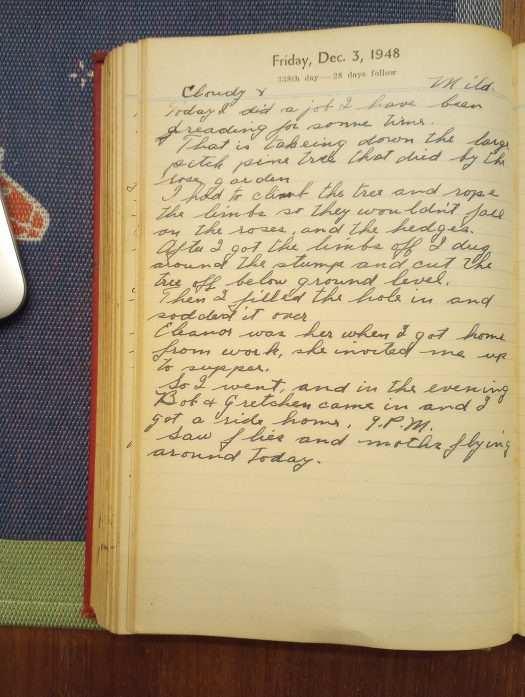 Friday, Dec. 3, 1948
338th day—28 days follow
Cloudy & Mild.
Today I did a job I have been
dreading for some time.
That is takeing down the large
pitch pine tree that died by the
rose garden
I had to climb the tree and rope
the limbs so they wouldn't fall
on the roses, and the hedges.
After I got the limbs off I dug
around the stump and cut the
tree off below ground level.
Then I filled the hole in and
sodded it over
Eleanor was her when I got home
from work, she invited me up
to supper.
So I went, and in the evening
Bob & Gretchen came in and I
got a ride home, 9.P.M.
Saw flies and moths flying
around Today.